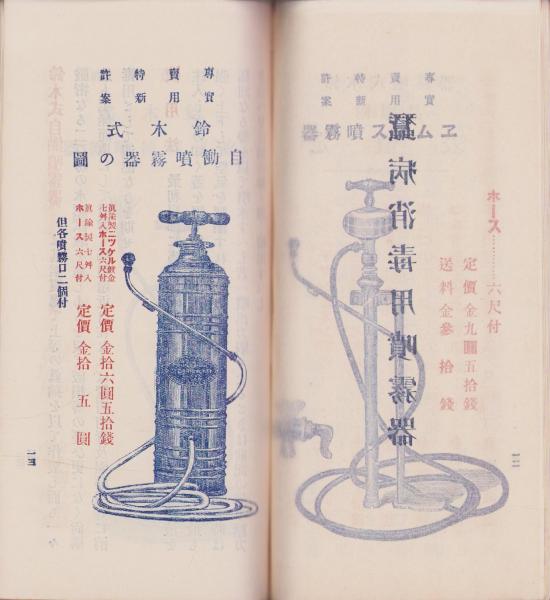 專賣特許
實用新案
ヱムス噴霧器
蠶病消毒用噴霧器
ホース…………六尺付
定價金九圓五拾錢
送料金參拾錢
專賣特許
實用新案
鈴木式
自働噴霧器の圖
眞鍮製ニツケル鍍金
七舛入ホース六尺付
定價 金拾六圓五拾錢
眞鍮製七舛入
ホース六尺付
定價 金拾五圓
但各噴霧口二個付